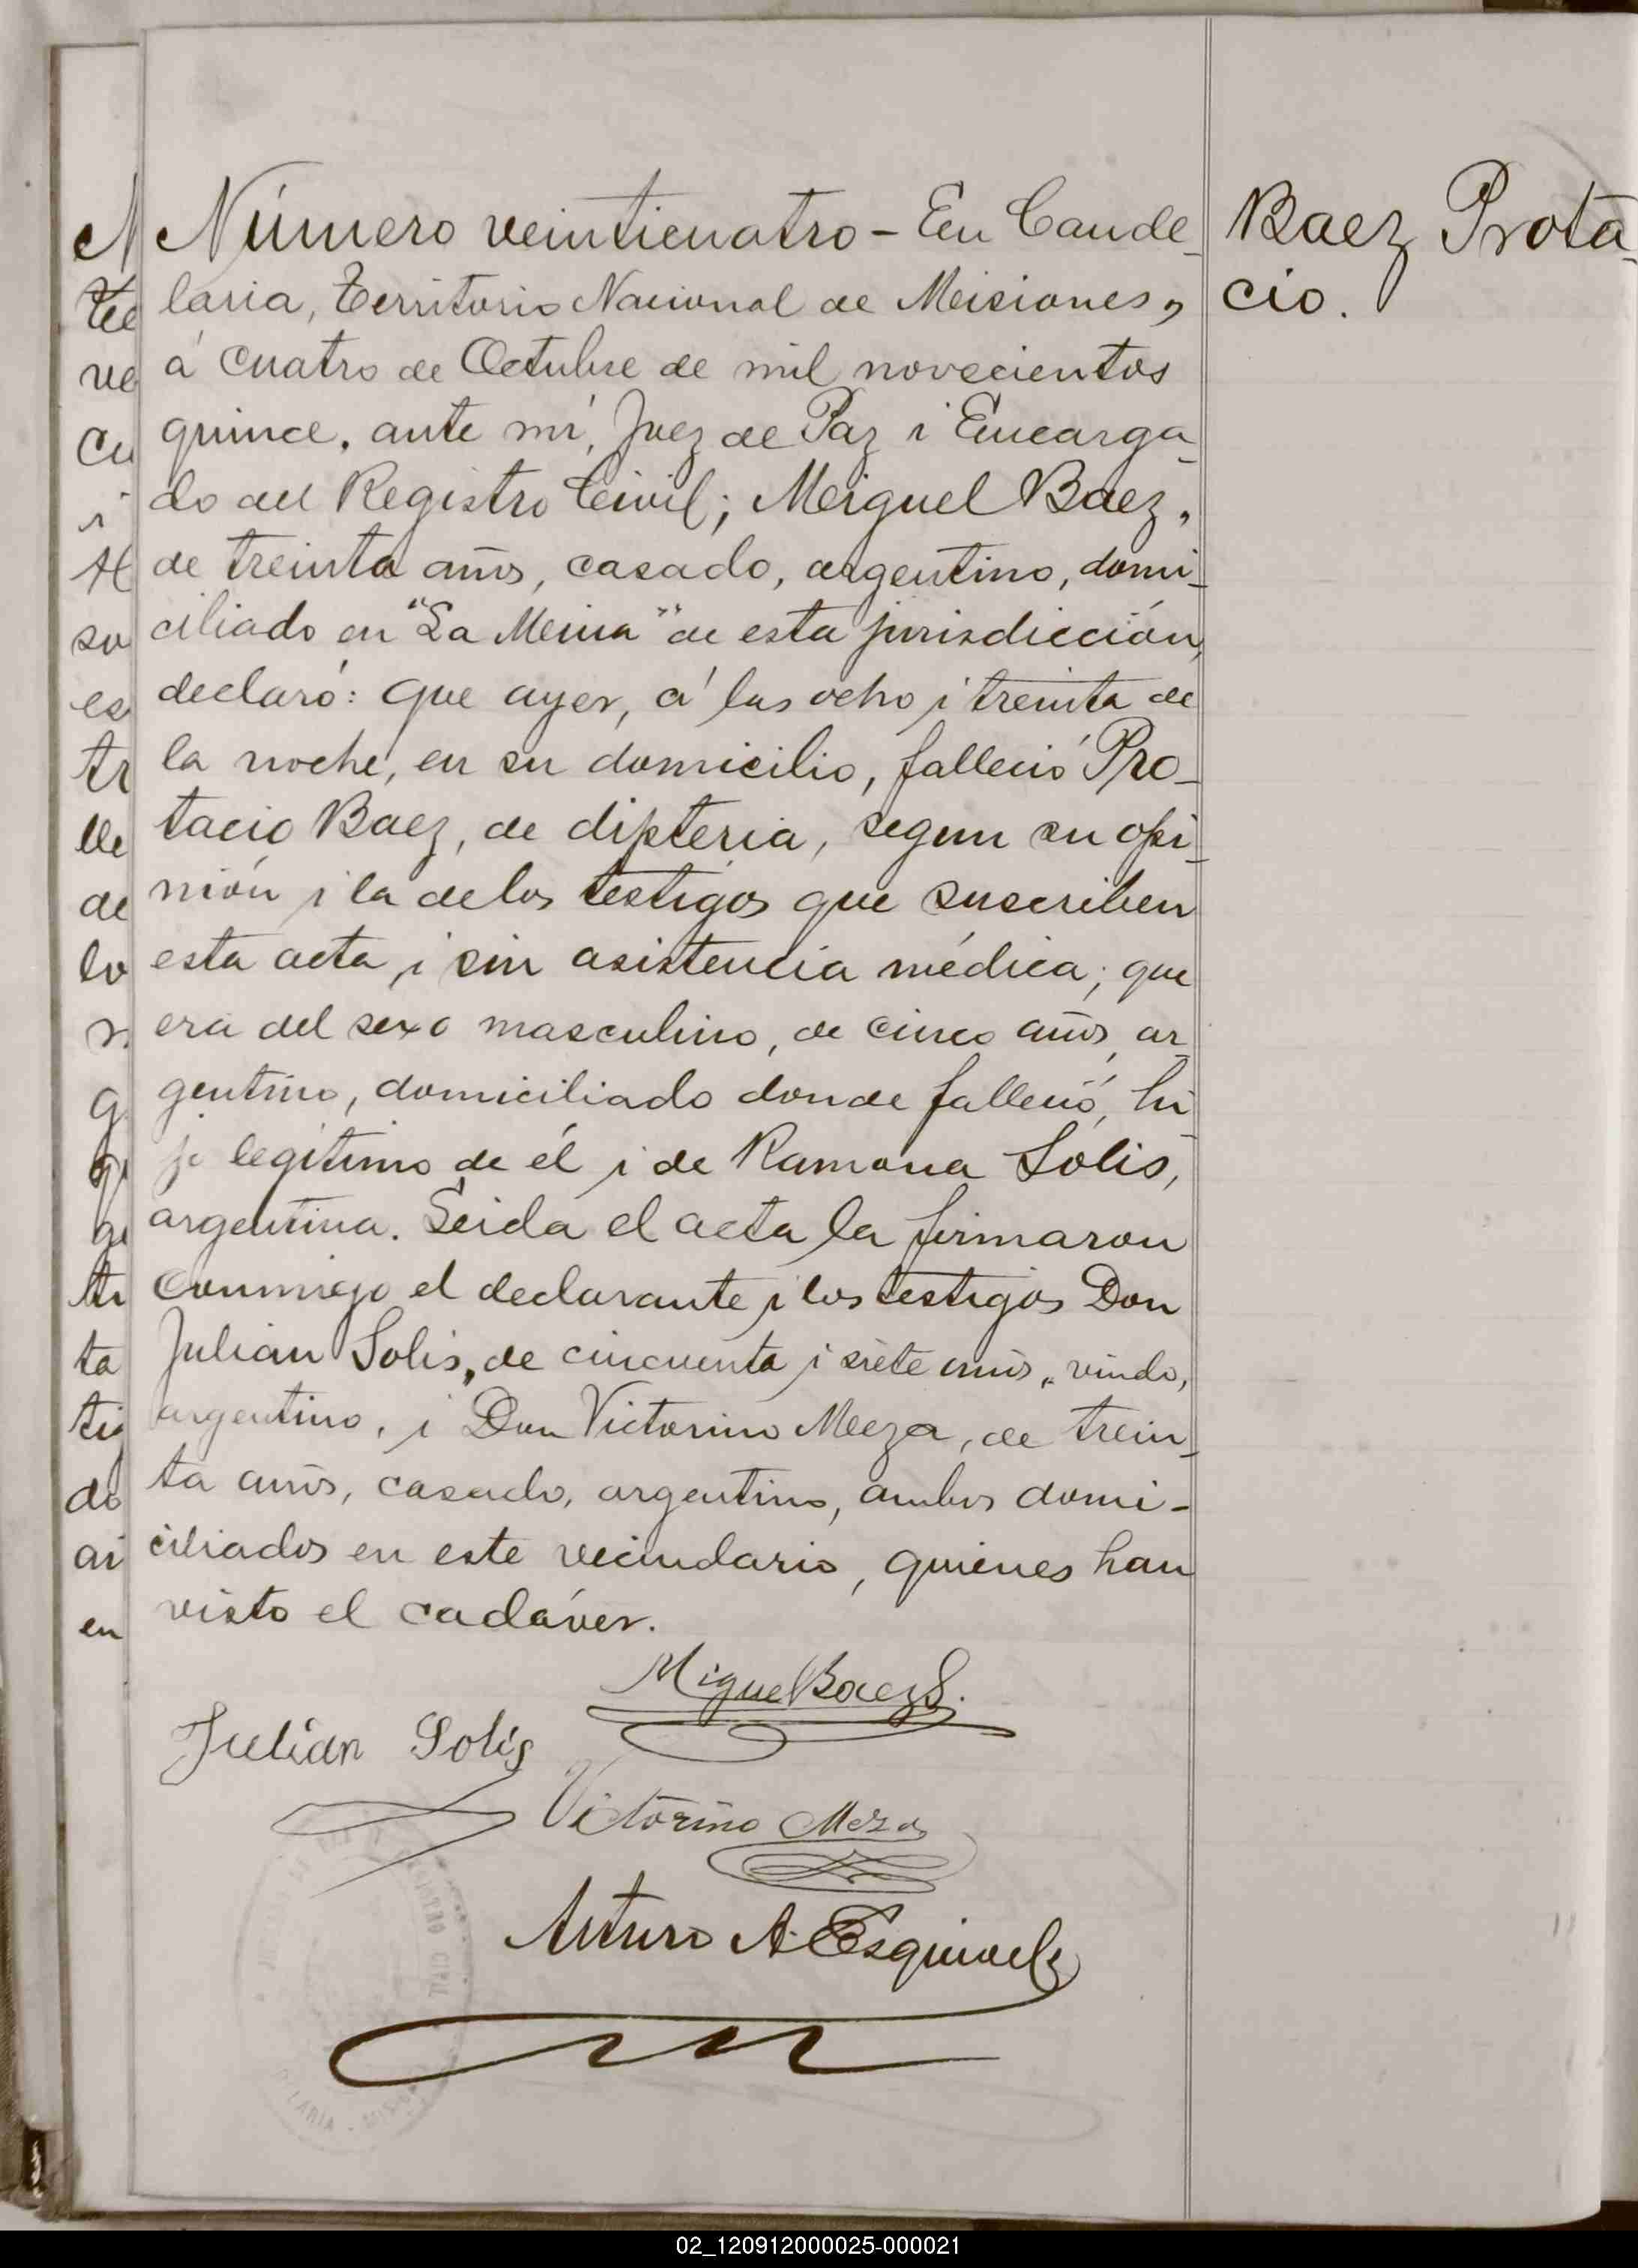 Número veinticuatro - En Cande-
laria, Territorio Nacional de Misiones,
á cuatro de Octubre de mil novecientos
quince, ante mí, Juez de Paz i Encarga-
do del Registro Civil; Miguel Baez,
de treinta años, casado, argentino, domi-
ciliado en "La Mina" de esta jurisdicción,
declaró: que ayer, á las ocho i treinta de
la noche, en su domicilio, falleció Pro-
tacio Baez, de dipteria, segun su opi-
nión i la de los testigos que suscriben
esta acta i sin asistencia médica; que
era del sexo masculino, de cinco años, ar-
gentino, domiciliado donde falleció, hi-
jo legítimo de él i de Ramona Solis,
argentina. Leida el acta la firmaron
conmigo el declarante i los testigos Don
Julián Solis, de cincuenta i siete años, viudo,
argentino, i Don Victorino Meza, de trein-
ta años, casado, argentino, ambos domi-
ciliados en este vecindario, quienes han
visto el cadáver.
Baez Prota-
cio.
Miguel Baez S.
Julian Solis
Victorino Meza
Arturo A. Esquivel
02_120912000025-000021